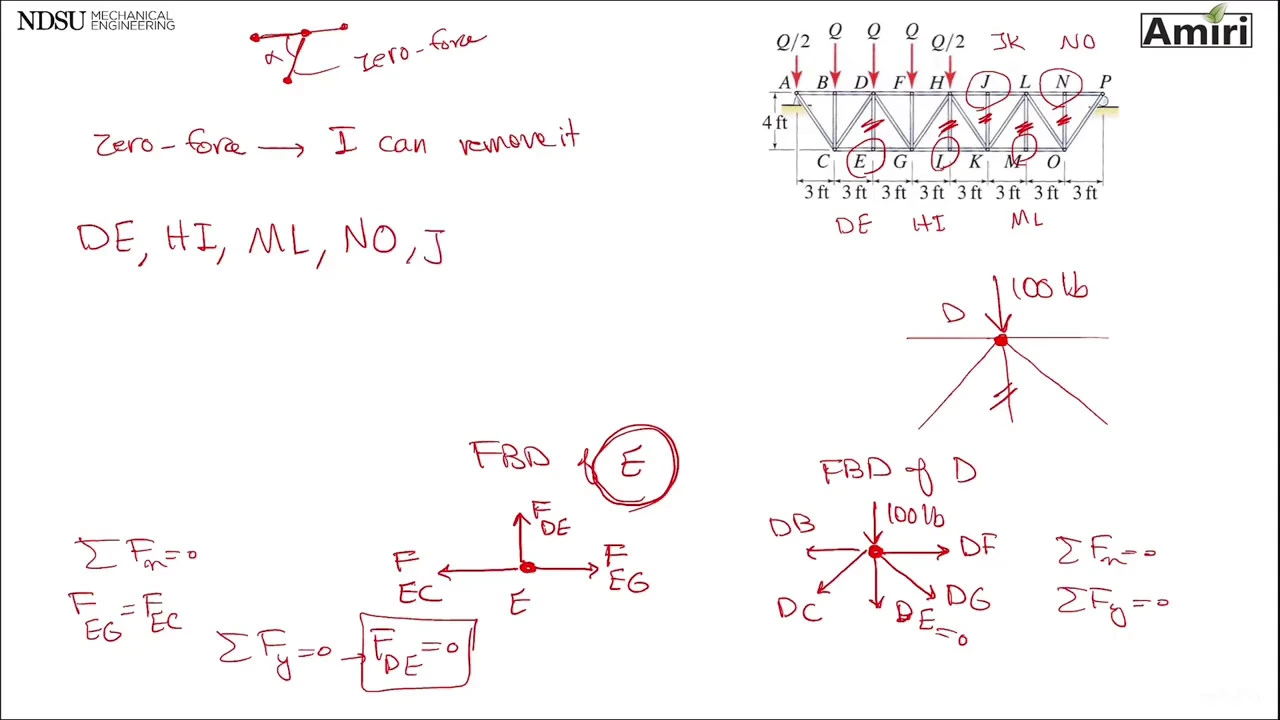 NDSU MECHANICAL ENGINEERING
Amiri
α zero-force
zero-force → I can remove it
DE, HI, ML, NO, J
Q/2 Q Q Q Q/2 JK NO
A B D F H J L N P
4 ft
C E G I K M O
3 ft 3 ft 3 ft 3 ft 3 ft 3 ft 3 ft 3 ft
DE HI ML
D 100 lb
FBD of E
F DE
F EC
F EG
E
ΣFx=0
F EG = F EC
ΣFy=0 → F DE = 0
FBD of D
100 lb
DB DF
DC DE=0 DG
ΣFx=0
ΣFy=0